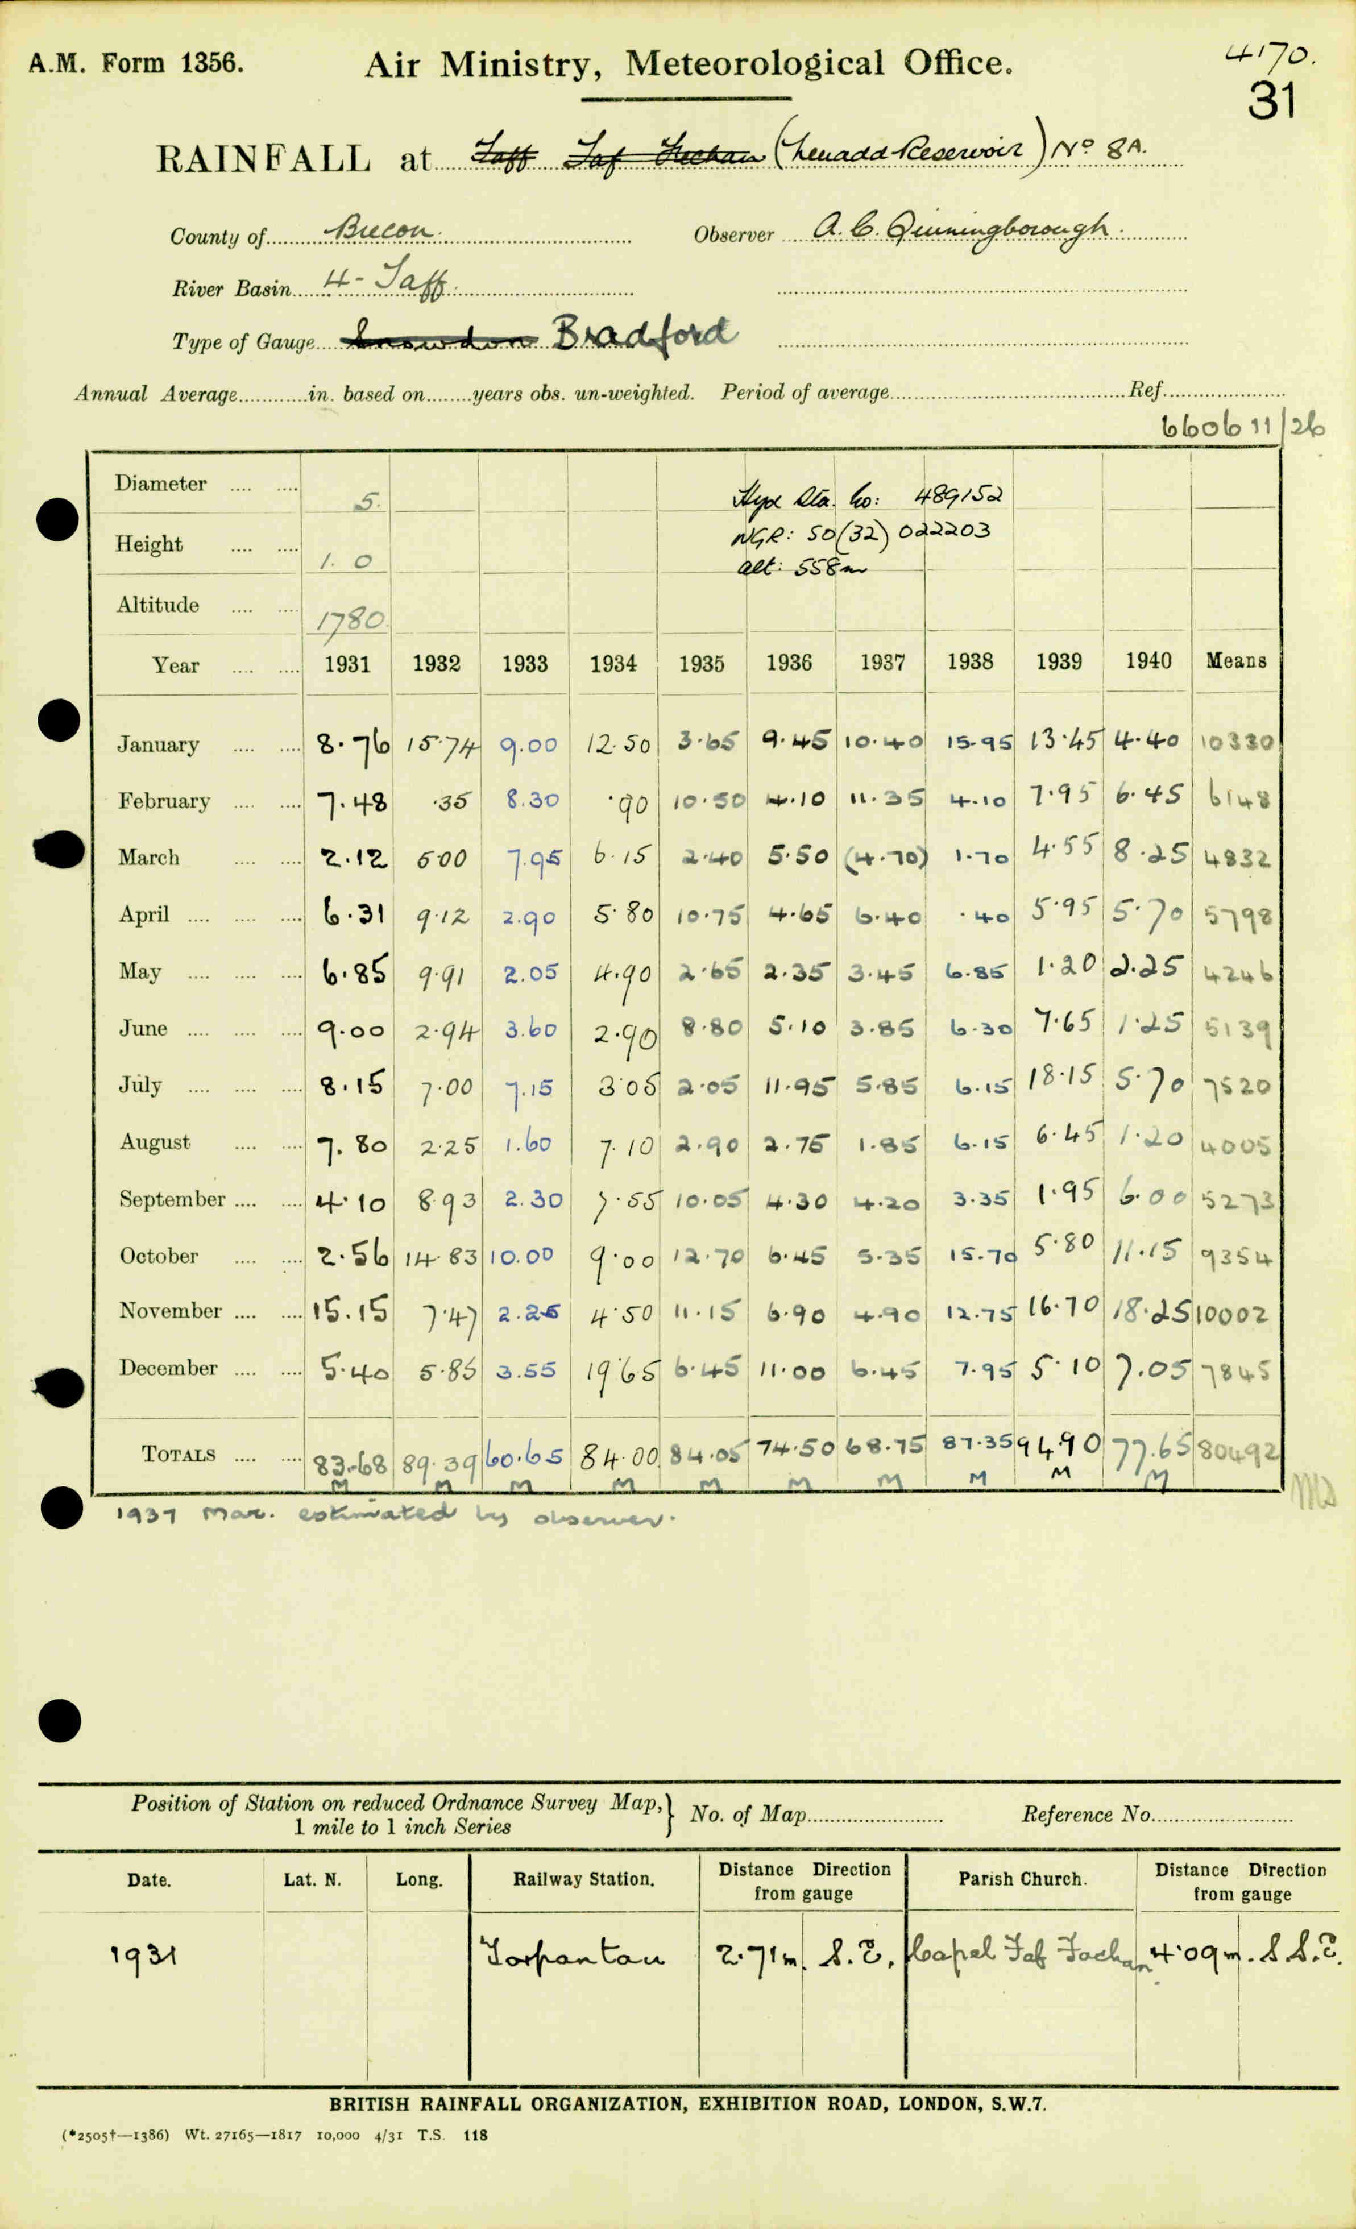 A.M. Form 1356. Air Ministry, Meteorological Office. 4170.
31
RAINFALL at Taff Taf Fechan (Neuadd Reservoir) No 8A.
County of Brecon. Observer A. C. Quinningborough.
River Basin 4 - Taff.
Type of Gauge Snowdon Bradford
Annual Average in. based on years obs. un-weighted. Period of average Ref.
660611/26
Diameter 5. Hyd Sta. No: 489152
Height 1. 0 NGR: SO(32) 022203
alt: 558m
Altitude 1780
Year 1931 1932 1933 1934 1935 1936 1937 1938 1939 1940 Means
January 8.76 15.74 9.00 12.50 3.65 9.45 10.40 15.95 13.45 4.40 10330
February 7.48 .35 8.30 .90 10.50 4.10 11.35 4.10 7.95 6.45 6148
March 2.12 5.00 7.95 6.15 2.40 5.50 (4.70) 1.70 4.55 8.25 4832
April 6.31 9.12 2.90 5.80 10.75 4.65 6.40 .40 5.95 5.70 5798
May 6.85 9.91 2.05 4.90 2.65 2.35 3.45 6.85 1.20 2.25 4246
June 9.00 2.94 3.60 2.90 8.80 5.10 3.85 6.30 7.65 1.25 5139
July 8.15 7.00 7.15 3.05 2.05 11.95 5.85 6.15 18.15 5.70 7520
August 7.80 2.25 1.60 7.10 2.90 2.75 1.85 6.15 6.45 1.20 4005
September 4.10 8.93 2.30 7.55 10.05 4.30 4.20 3.35 1.95 6.00 5273
October 2.56 14.83 10.00 9.00 12.70 6.45 5.35 15.70 5.80 11.15 9354
November 15.15 7.47 2.25 4.50 11.15 6.90 4.90 12.75 16.70 18.25 10002
December 5.40 5.85 3.55 19.65 6.45 11.00 6.45 7.95 5.10 7.05 7845
TOTALS 83.68 89.39 60.65 84.00 84.05 74.50 68.75 87.35 94.90 77.65 80492
M M M M M M M M M M Ms
1937 Mar. estimated by observer.
Position of Station on reduced Ordnance Survey Map, } No. of Map Reference No.
1 mile to 1 inch Series
Date. Lat. N. Long. Railway Station. Distance Direction from gauge Parish Church. Distance Direction from gauge
1931 Torpantau 2.71m. S.E. Capel Taf Fechan 4.09m. S S.E.
BRITISH RAINFALL ORGANIZATION, EXHIBITION ROAD, LONDON, S.W.7.
(*2505†—1386) Wt. 27165—1817 10,000 4/31 T.S. 118